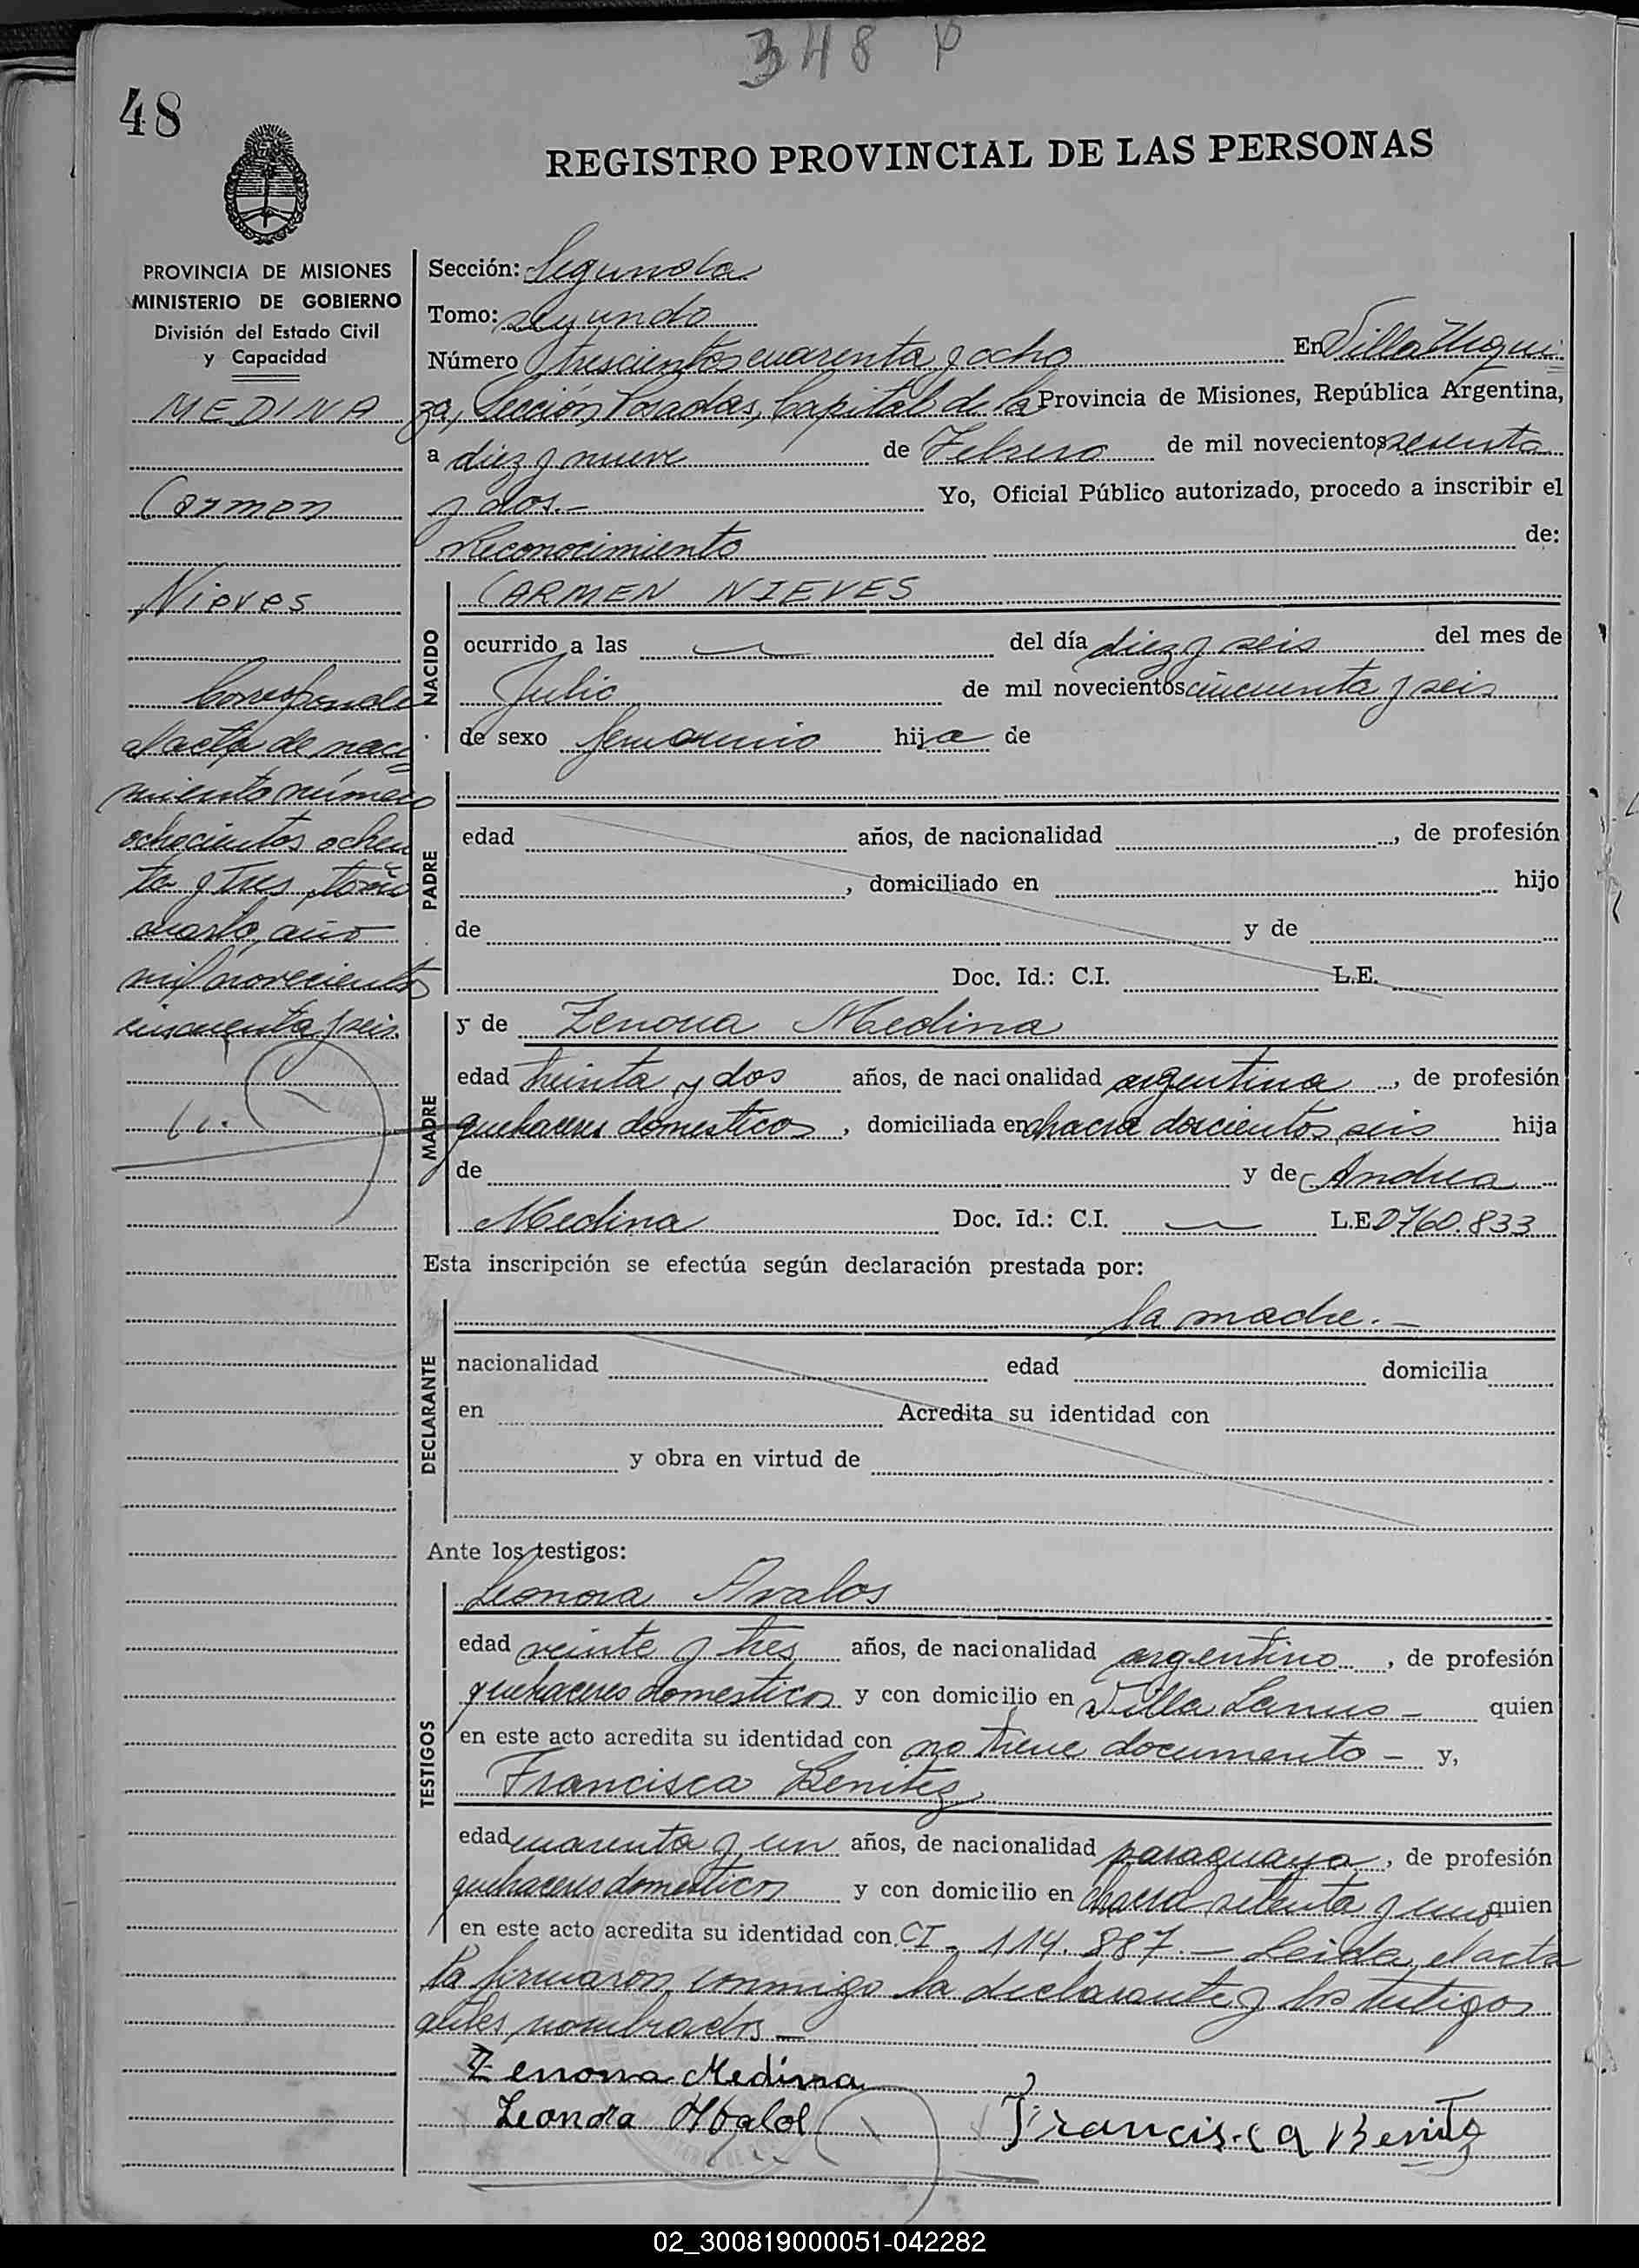 348
48
REGISTRO PROVINCIAL DE LAS PERSONAS
PROVINCIA DE MISIONES
MINISTERIO DE GOBIERNO
División del Estado Civil
y Capacidad
MEDINA
Carmen
Nieves
Corresponde
al acta de naci
miento número
ochocientos ochen
ta y tres, tomo
cuarto, año
mil novecientos
cincuenta y seis.
Sección: Segunda
Tomo: segundo
Número trescientos cuarenta y ocho En Villa Urqui
za, Sección Posadas, Capital de la Provincia de Misiones, República Argentina,
a diez y nueve de Febrero de mil novecientos sesenta
y dos.- Yo, Oficial Público autorizado, procedo a inscribir el
Reconocimiento de:
NACIDO
CARMEN NIEVES
ocurrido a las del día diez y seis del mes de
Julio de mil novecientos cincuenta y seis
de sexo femenino hija de
PADRE
edad años, de nacionalidad , de profesión
, domiciliado en hijo
de y de
Doc. Id.: C.I. L.E.
MADRE
y de Zenona Medina
edad treinta y dos años, de nacionalidad argentina , de profesión
quehaceres domesticos , domiciliada en chacra doscientos seis hija
de y de Andrea
Medina Doc. Id.: C.I. L.E 0760.833
Esta inscripción se efectúa según declaración prestada por:
DECLARANTE
la madre.-
nacionalidad edad domicilia
en Acredita su identidad con
y obra en virtud de
Ante los testigos:
TESTIGOS
Leonora Avalos
edad veinte y tres años, de nacionalidad argentino , de profesión
quehaceres domesticos y con domicilio en Villa Lanus - quien
en este acto acredita su identidad con no tiene documento - y,
Francisca Benitez
edad cuarenta y un años, de nacionalidad paraguaya , de profesión
quehaceres domesticos y con domicilio en chacra setenta y uno quien
en este acto acredita su identidad con CI - 114.887.- Leida el acta
la firmaron conmigo la declarante y los testigos
antes nombrados -
Zenona Medina
Leonora Abalol
Francisca Benitz
02_300819000051-042282